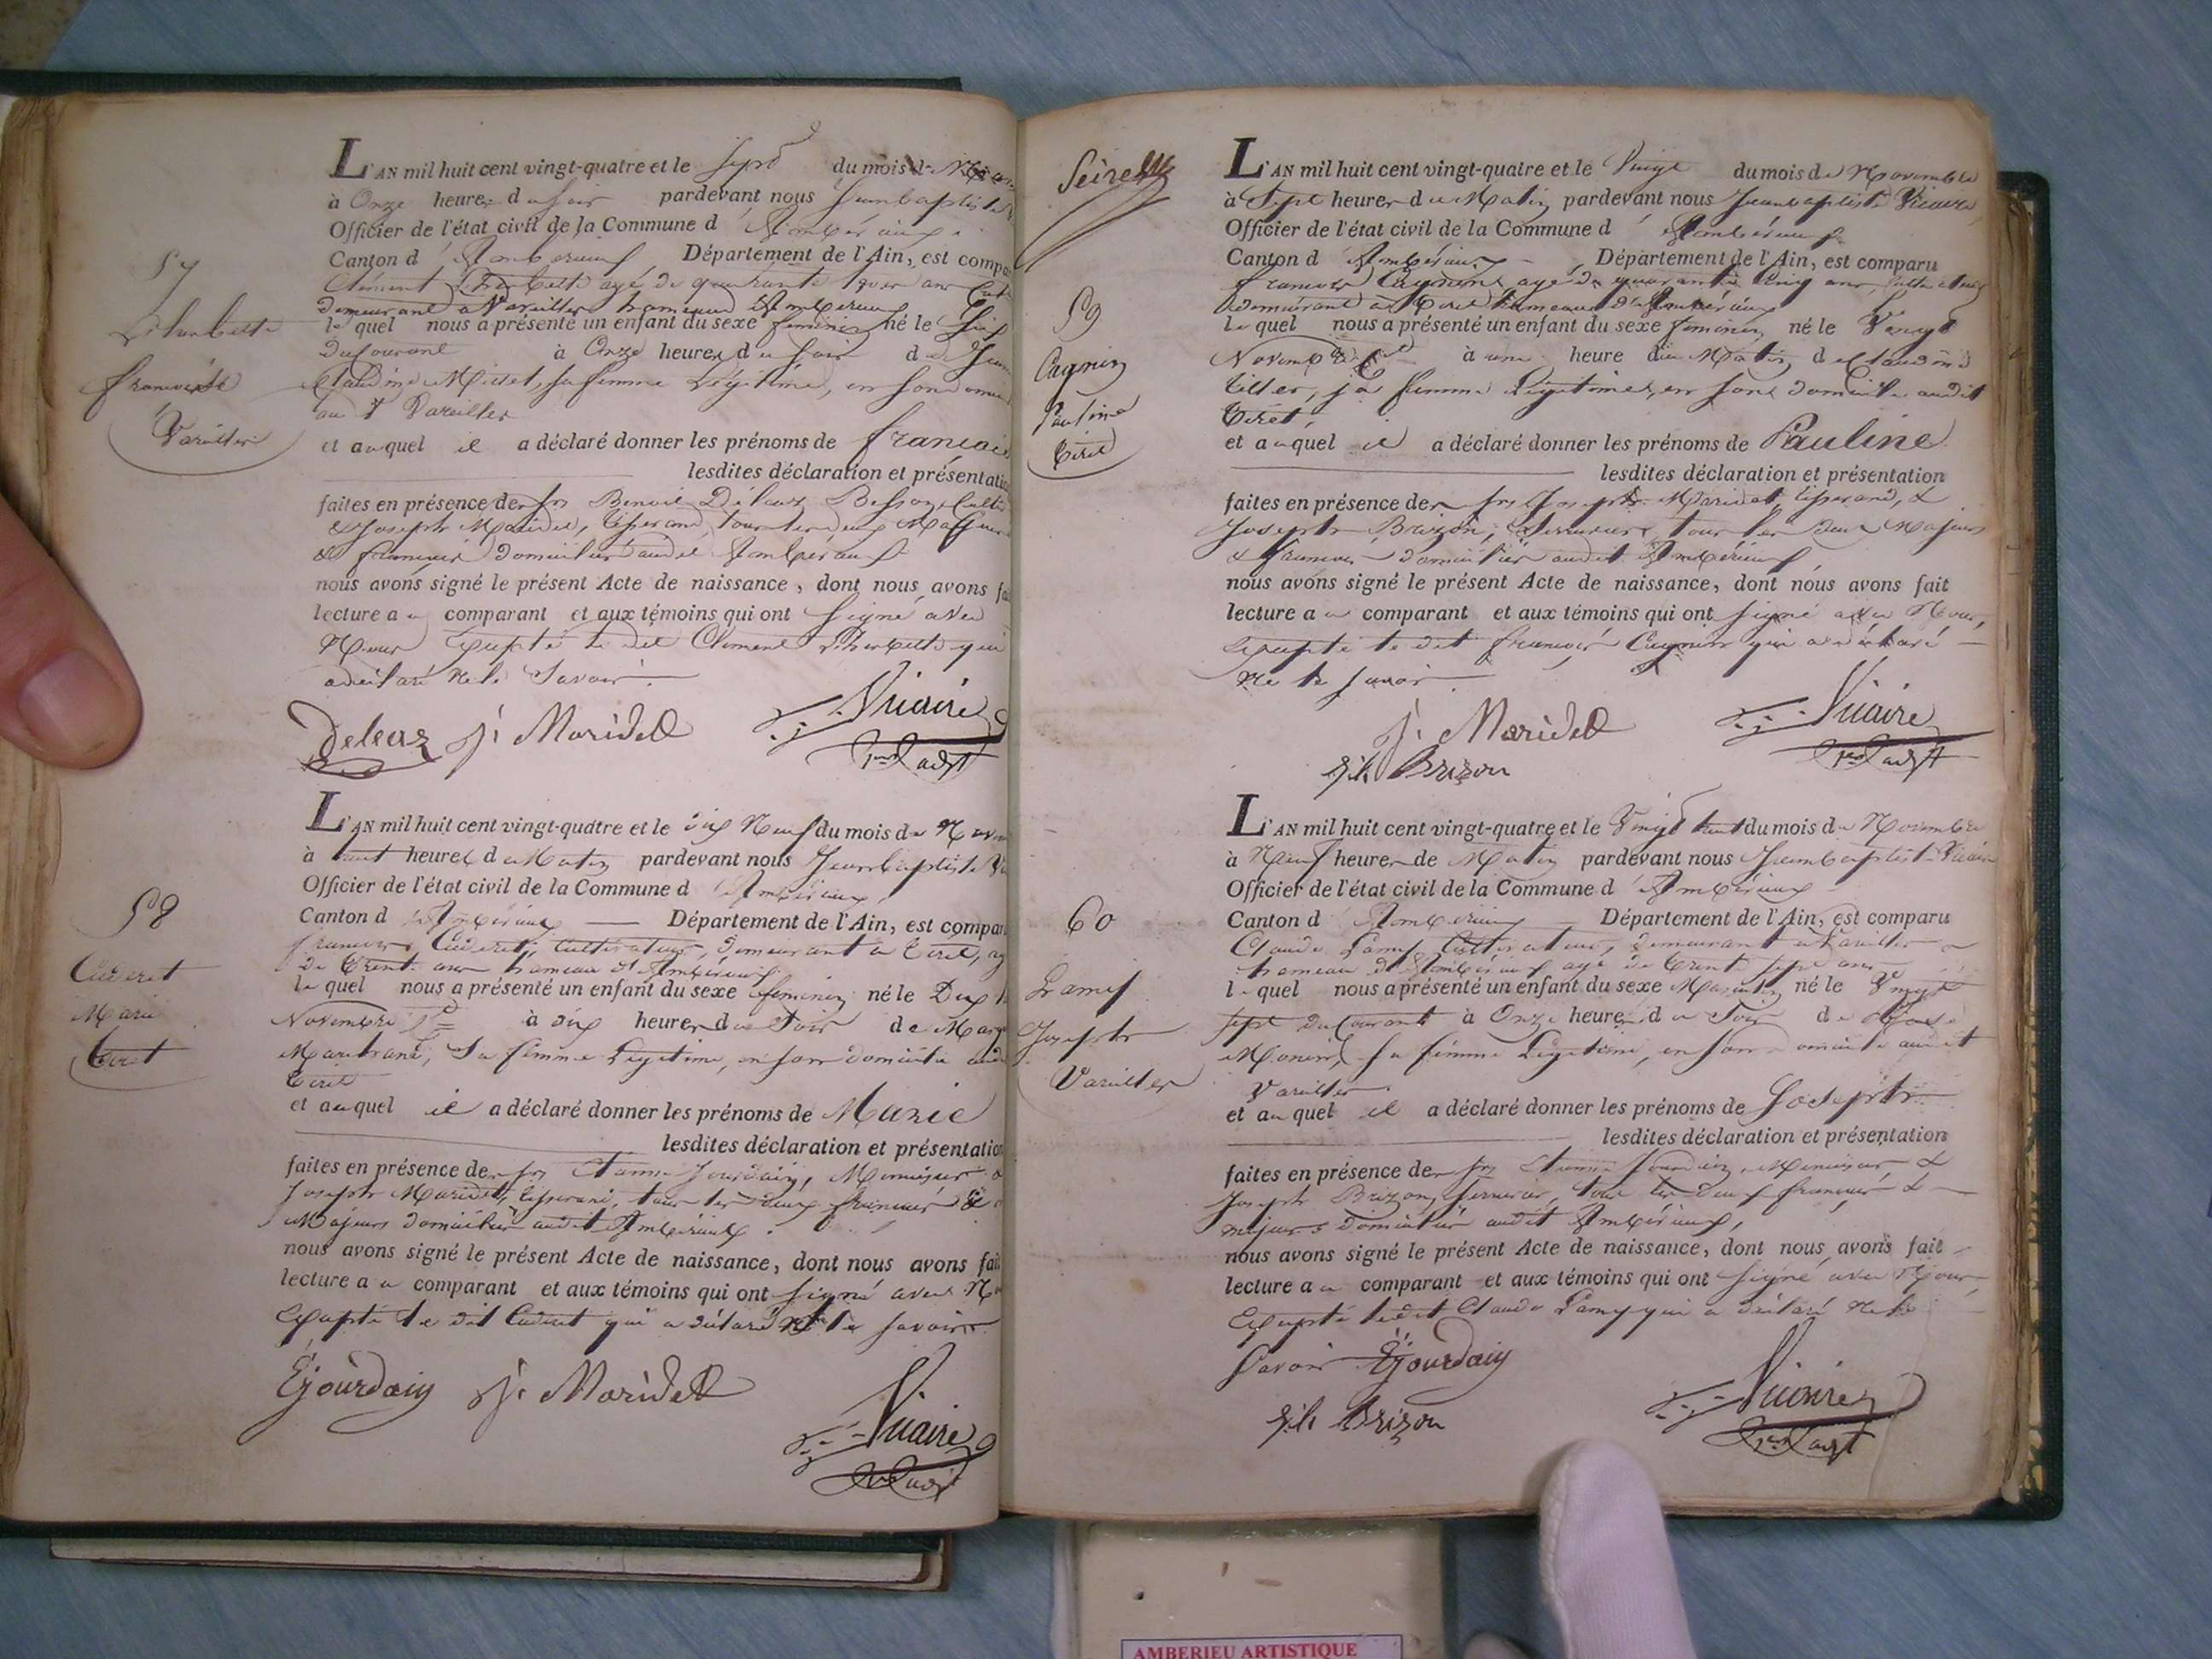 57
françoise
Vareilles
L'AN mil huit cent vingt-quatre et le sept du mois de
à Onze heures du soir pardevant nous Jeanbaptiste
Officier de l'état civil de la Commune d'Ambérieux
Canton d'Ambérieux Département de l'Ain, est compa
Clément agé de quarante trois ans
demeurant a Vareilles hameau d'Ambérieux
lequel nous a présenté un enfant du sexe feminin né le Six
Du Courant à Onze heures du soir de
Claudine sa femme Légitime, en son domi
au dt Vareilles
et auquel il a déclaré donner les prénoms de françoi
lesdites déclaration et présentatio
faites en présence des srs Benoit Deleaz
& Joseph Maridet, tisserand, tous les deux Majeurs
& français domiciliés audit Ambérieux
nous avons signé le présent Acte de naissance, dont nous avons fai
lecture au comparant et aux témoins qui ont signé avec
Nous Excepté le dit Clément qui
a déclaré ne le Savoir.
Deleaz J. Maridet Vicaire
58
Cuderet
Marie
Tiret
L'AN mil huit cent vingt-quatre et le dix Neuf du mois de Nove
à huit heures du Matin pardevant nous Jeanbaptiste Vi
Officier de l'état civil de la Commune d'Ambérieux
Canton d'Ambérieux Département de l'Ain, est compar
françois Cuderet, Cultivateur, demeurant a Tiret, ag
de trente ans hameau d'Ambérieux
lequel nous a présenté un enfant du sexe feminin né le Dix
Novembre à dix heures du Soir de Mar
sa femme Légitime, en son domicile aud
Tiret
et auquel il a déclaré donner les prénoms de Marie
lesdites déclaration et présentation
faites en présence des srs Etienne Jourdain, Menuisier &
Joseph Maridet, tisserand, tous les deux français &
Majeurs domiciliés audit Ambérieux.
nous avons signé le présent Acte de naissance, dont nous avons fait
lecture au comparant et aux témoins qui ont signé avec No
Excepté le dit Cuderet qui a déclaré ne le savoir.
E Jourdain J. Maridet
Vicaire
59
Cagnin
Pauline
Tiret
L'AN mil huit cent vingt-quatre et le Vingt du mois de Novembre
à Sept heures du Matin pardevant nous Jeanbaptiste Vicaire
Officier de l'état civil de la Commune d'Ambérieux
Canton d'Ambérieux Département de l'Ain, est comparu
françois Cagnin, agé de quarante Cinq ans, Cultivateur
demeurant a Tiret hameau d'Ambérieux
lequel nous a présenté un enfant du sexe feminin né le Vingt
Novembre à une heure du Matin de Claudine
sa femme Légitime, en son domicile audit
Tiret,
et auquel il a déclaré donner les prénoms de Pauline
lesdites déclaration et présentation
faites en présence des srs Joseph Maridet, tisserand, &
Joseph Brizon, Serrurier, tous les deux Majeurs
& français domiciliés audit Ambérieux,
nous avons signé le présent Acte de naissance, dont nous avons fait
lecture au comparant et aux témoins qui ont signé avec Nous,
Excepté le dit françois Cagnin qui a déclaré
ne le savoir
J. Maridet Vicaire
Brizon
60
Lamy
Joseph
Vareilles
L'AN mil huit cent vingt-quatre et le Vingt huit du mois de Novembre
à Neuf heures de Matin pardevant nous Jeanbaptiste Vicaire
Officier de l'état civil de la Commune d'Ambérieux
Canton d'Ambérieux Département de l'Ain, est comparu
Claude Lamy Cultivateur, demeurant a Vareilles
hameau d'Ambérieux agé de trente sept ans
lequel nous a présenté un enfant du sexe Masculin né le Vingt
sept du Courant à Onze heures du Soir de
sa femme Légitime, en son domicile audit
Vareilles
et auquel il a déclaré donner les prénoms de Joseph
lesdites déclaration et présentation
faites en présence des srs Etienne Jourdain, Menuisier &
Joseph Brizon, serrurier, tous les deux français &
majeurs domiciliés audit Ambérieux,
nous avons signé le présent Acte de naissance, dont nous avons fait
lecture au comparant et aux témoins qui ont signé avec Nous,
Excepté ledit Claude Lamy qui a déclaré ne le
Savoir E Jourdain
Brizon Vicaire
AMBERIEU ARTISTIQUE